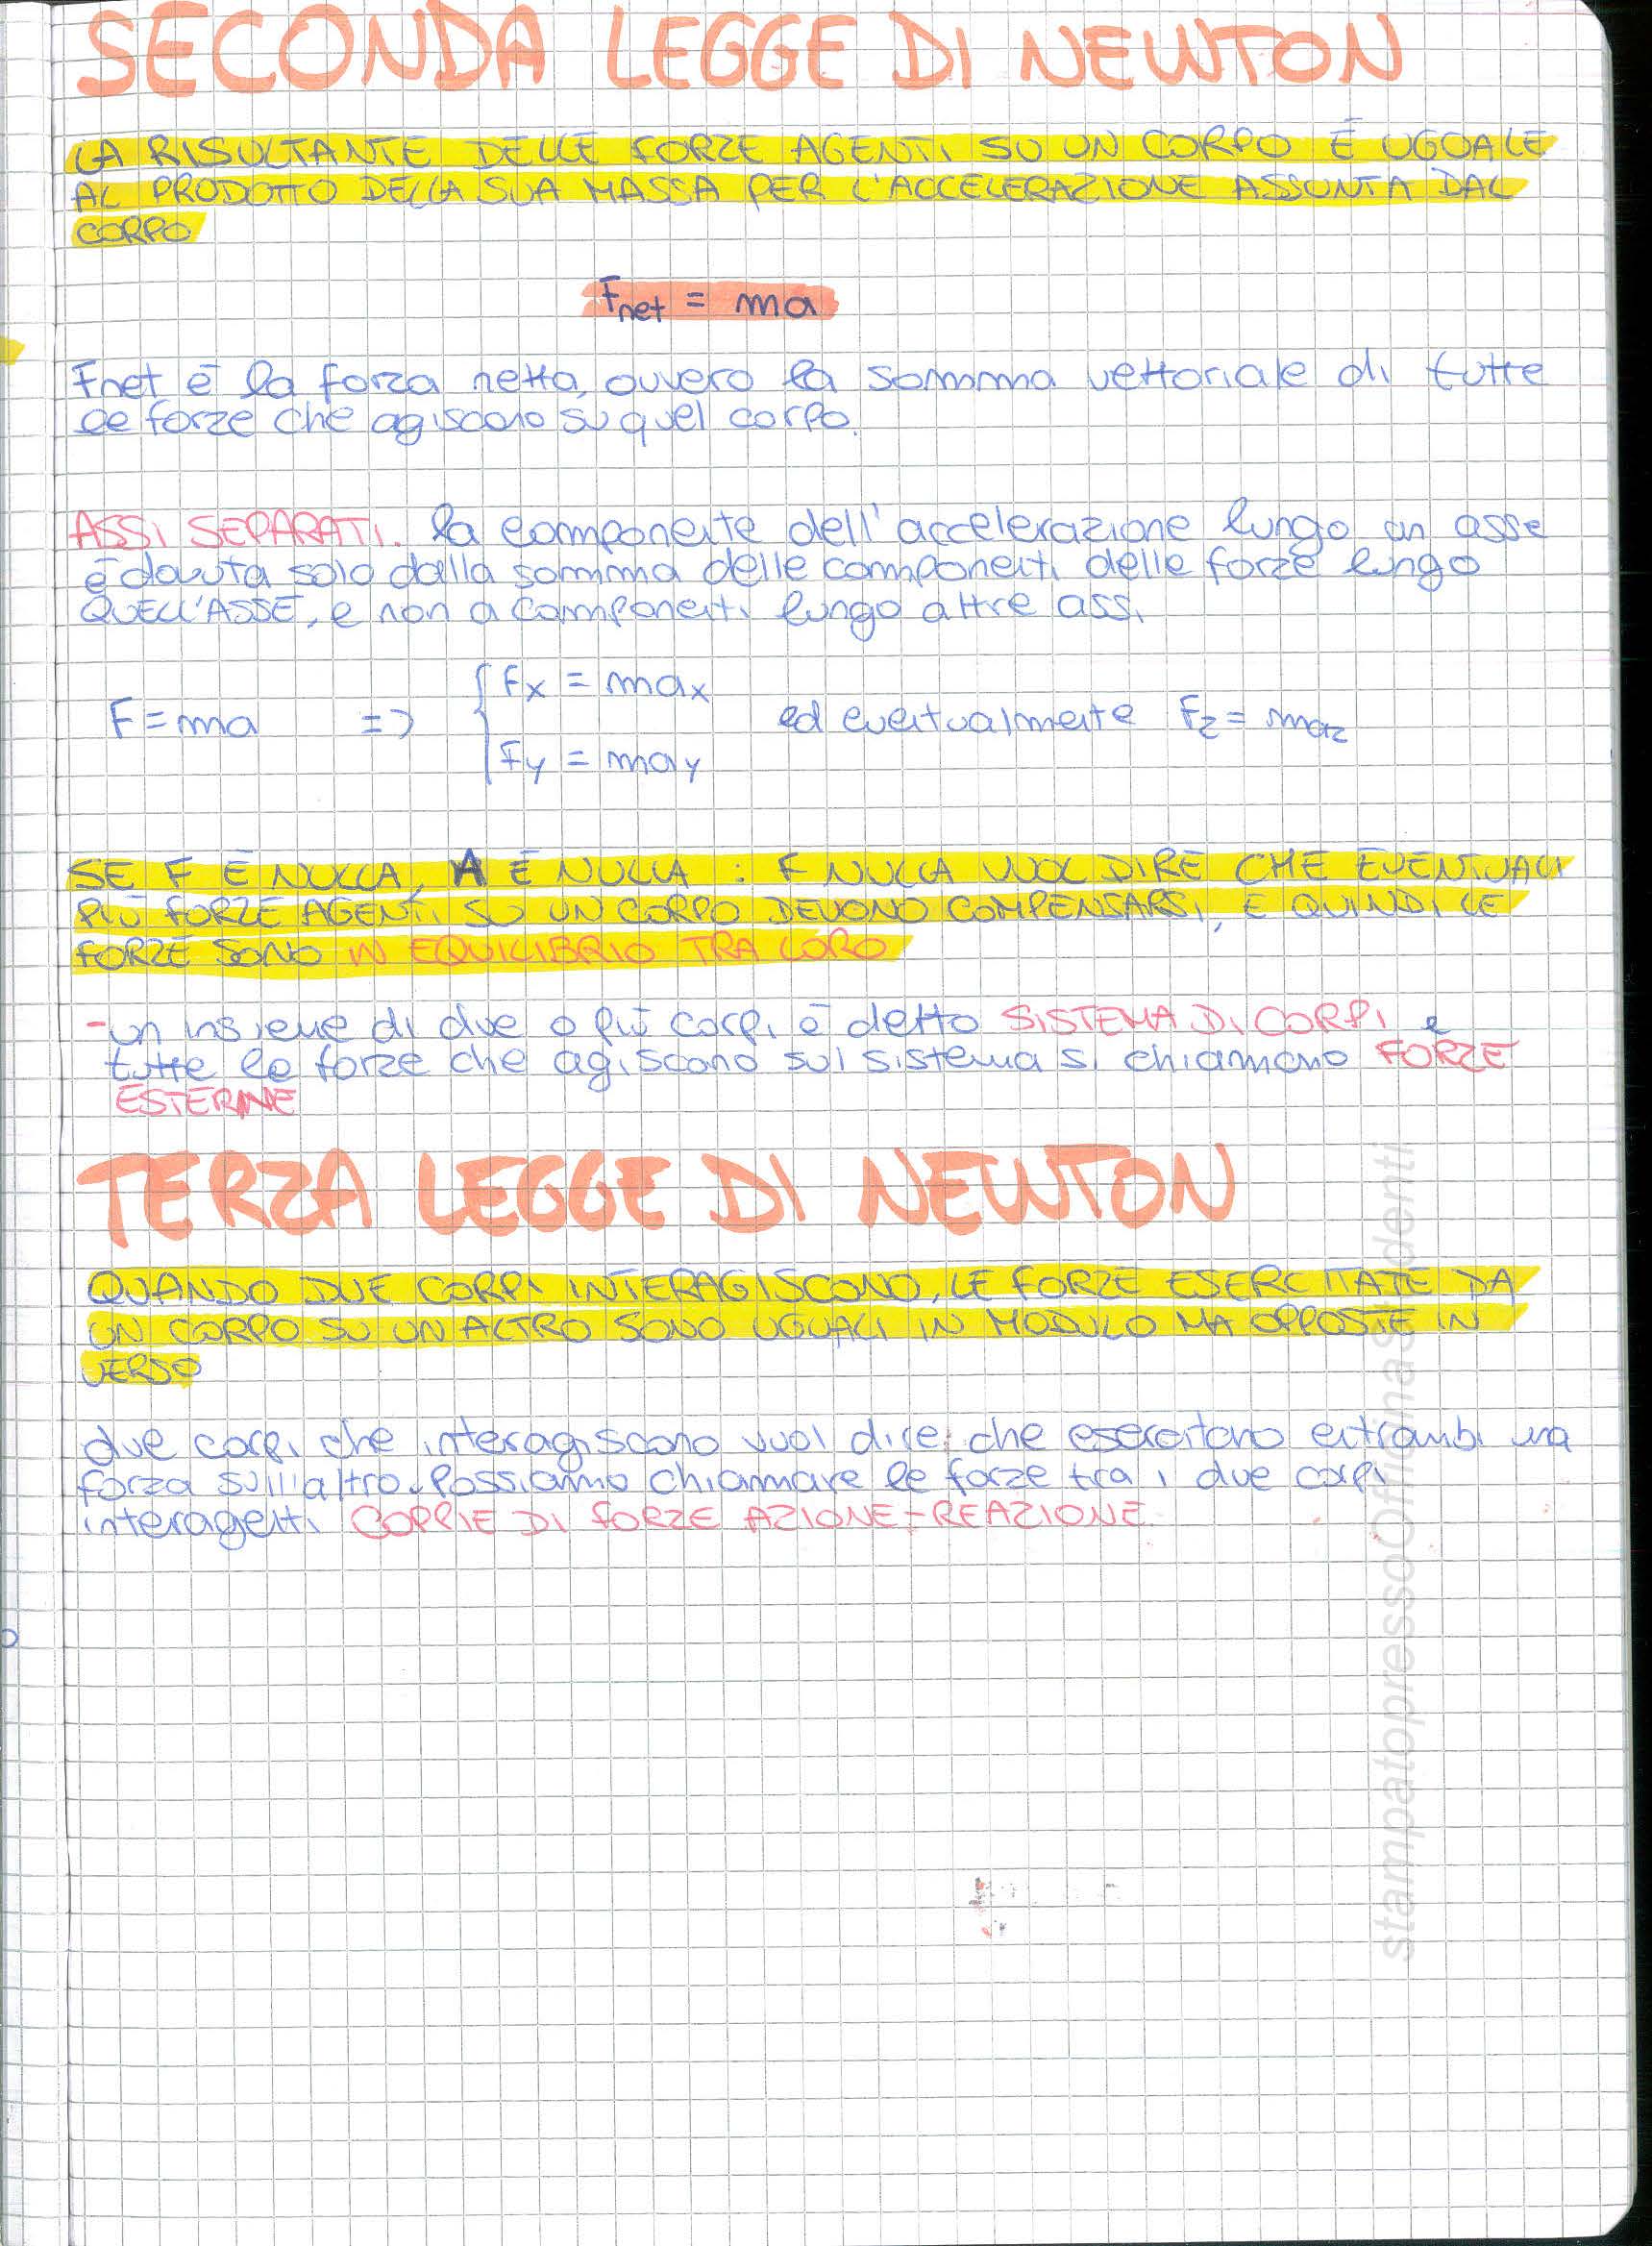 SECONDA LEGGE DI NEWTON
LA RISULTANTE DELLE FORZE AGENTI SU UN CORPO È UGUALE
AL PRODOTTO DELLA SUA MASSA PER L'ACCELERAZIONE ASSUNTA DAL
CORPO
Fnet = ma
Fnet è la forza netta, ovvero la somma vettoriale di tutte
le forze che agiscono su quel corpo.
ASSI SEPARATI. la componente dell'accelerazione lungo un asse
è dovuta solo dalla somma delle componenti delle forze lungo
QUELL'ASSE, e non a componenti lungo altre assi
Fx = max
F = ma => ed eventualmente Fz = maz
Fy = may
SE F È NULLA, A È NULLA : F NULLA VUOL DIRE CHE EVENTUALI
PIÙ FORZE AGENTI SU UN CORPO DEVONO COMPENSARSI, E QUINDI LE
FORZE SONO IN EQUILIBRIO TRA LORO
- un insieme di due o più corpi è detto SISTEMA DI CORPI e
tutte le forze che agiscono sul sistema si chiamano FORZE
ESTERNE
TERZA LEGGE DI NEWTON
QUANDO DUE CORPI INTERAGISCONO, LE FORZE ESERCITATE DA
UN CORPO SU UN ALTRO SONO UGUALI IN MODULO MA OPPOSTE IN
VERSO
due corpi che interagiscono vuol dire che esercitano entrambi una
forza sull'altro. Possiamo chiamare le forze tra i due corpi
interagenti COPPIE DI FORZE AZIONE-REAZIONE.
stampatopressoOfficinaStudenti